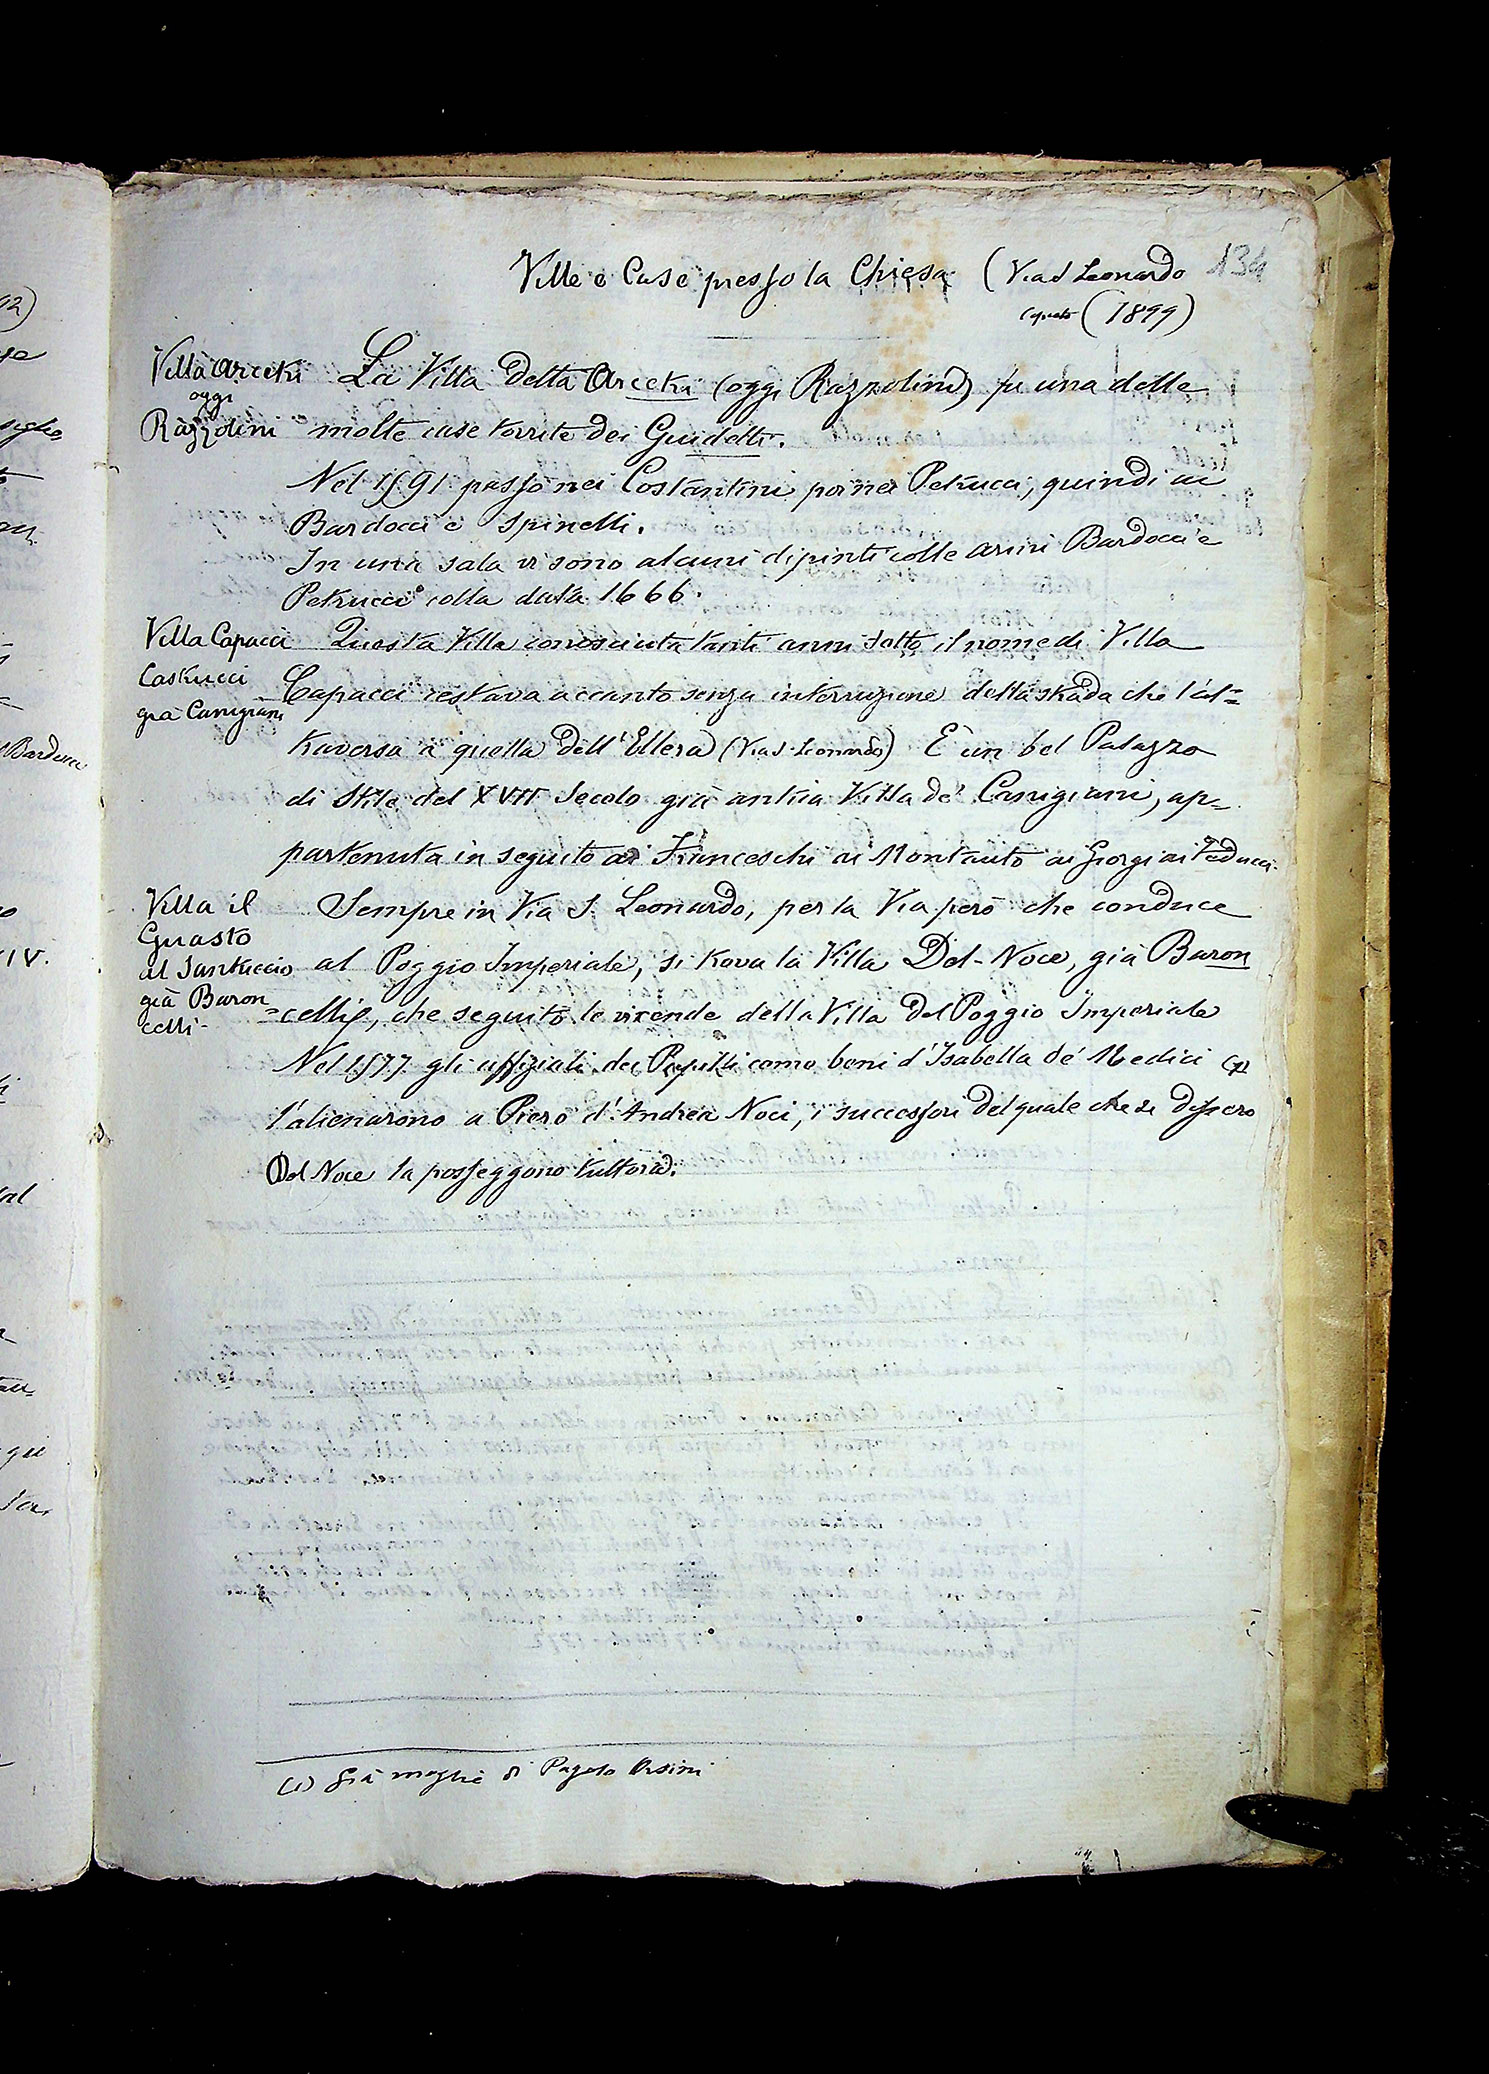 134
Ville e Case presso la Chiesa (Via S Leonardo
(1899)
Villa Arcetri
oggi
Razzolini
La Villa detta Arcetri (oggi Razzolini) fu una delle
molte case torrite dei Guidetti.
Nel 1591 passò nei Costantini poi nei Petrucci, quindi ai
Bardocci e Spinelli.
In una sala vi sono alcuni dipinti colle armi Bardocci e
Petrucci colla data 1666.
Villa Capacci
Castrucci
già Canigiani
Questa Villa conosciuta tanti anni sotto il nome di Villa
Capacci restava accanto senza interruzione della strada che l'at=
traversa a quella dell'Ellera (Via S. Leonardo) È un bel Palazzo
di stile del XVII Secolo già antica Villa de' Canigiani, ap=
partenuta in seguito ai Franceschi ai Montauto ai Giorgi ai
Villa il
Guasto
al Santuccio
già Baron
celli-
Sempre in Via S. Leonardo, per la Via però che conduce
al Poggio Imperiale, si trova la Villa Del-Noce, già Baron
=celli, che seguitò le vicende della Villa Del Poggio Imperiale
Nel 1577 gli uffiziali dei Pupilli come beni d'Isabella de' Medici (1)
l'alienarono a Piero d'Andrea Noci, i successori del quale che si dissero
Del Noce la posseggono tuttora.
(1) già moglie di Pagolo Orsini